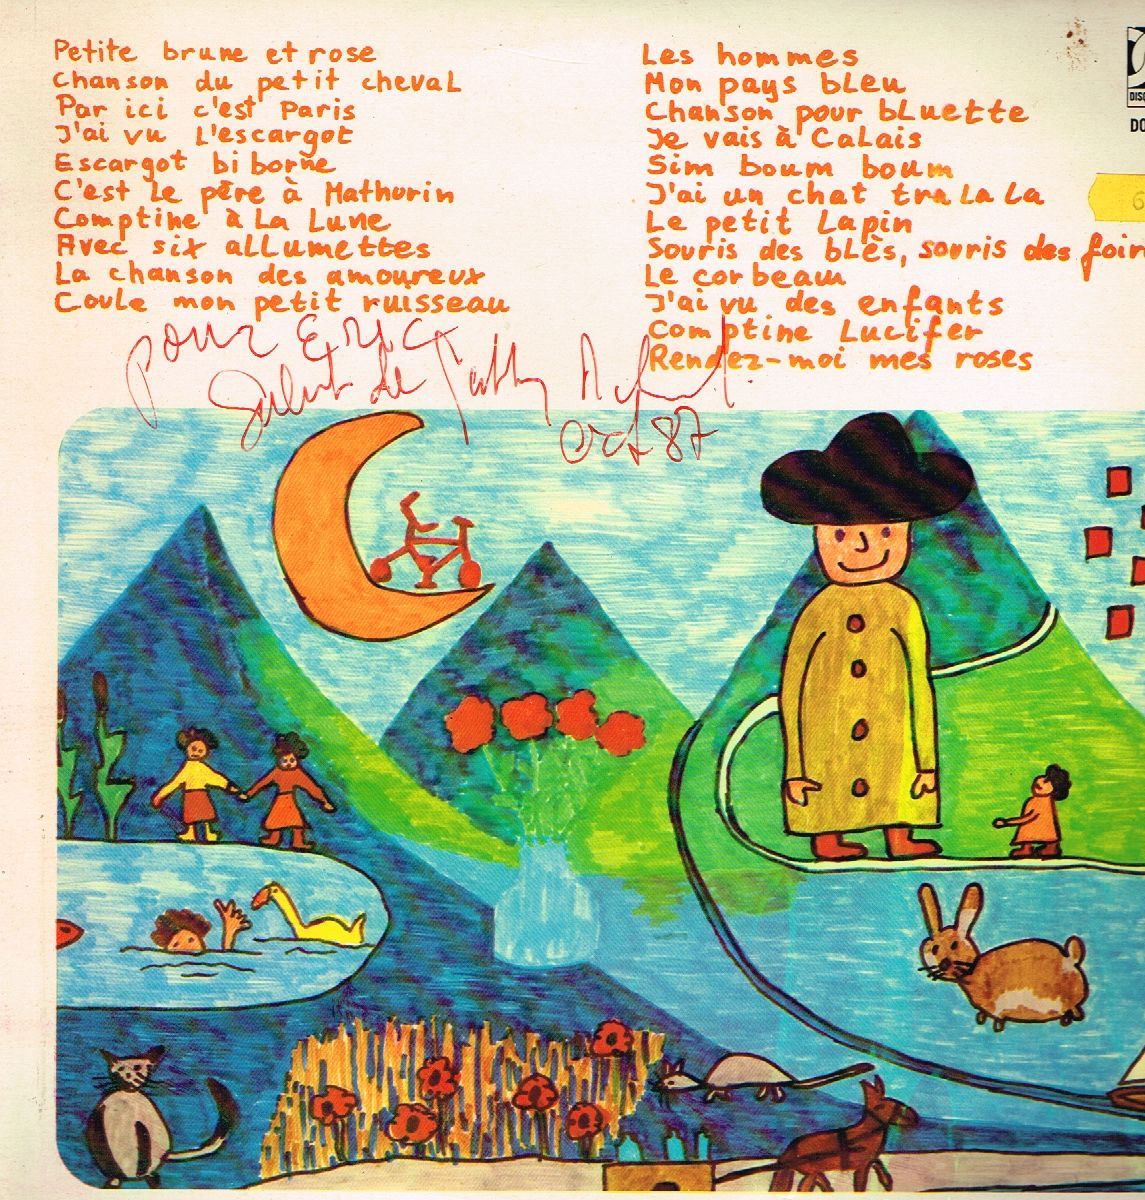 Petite brune et rose
Chanson du petit cheval
Par ici c'est Paris
J'ai vu L'escargot
Escargot bi borne
C'est Le père à Mathurin
Comptine à La Lune
Avec six allumettes
La chanson des amoureux
Coule mon petit ruisseau
Les hommes
Mon pays bleu
Chanson pour bluette
Je vais à Calais
Sim boum boum
J'ai un chat tra La La
Le petit Lapin
Souris des blés, souris des foin
Le corbeau
J'ai vu des enfants
Comptine Lucifer
Rendez-moi mes roses
Pour Eric
Salut de
Oct 87
DISC
DO
6